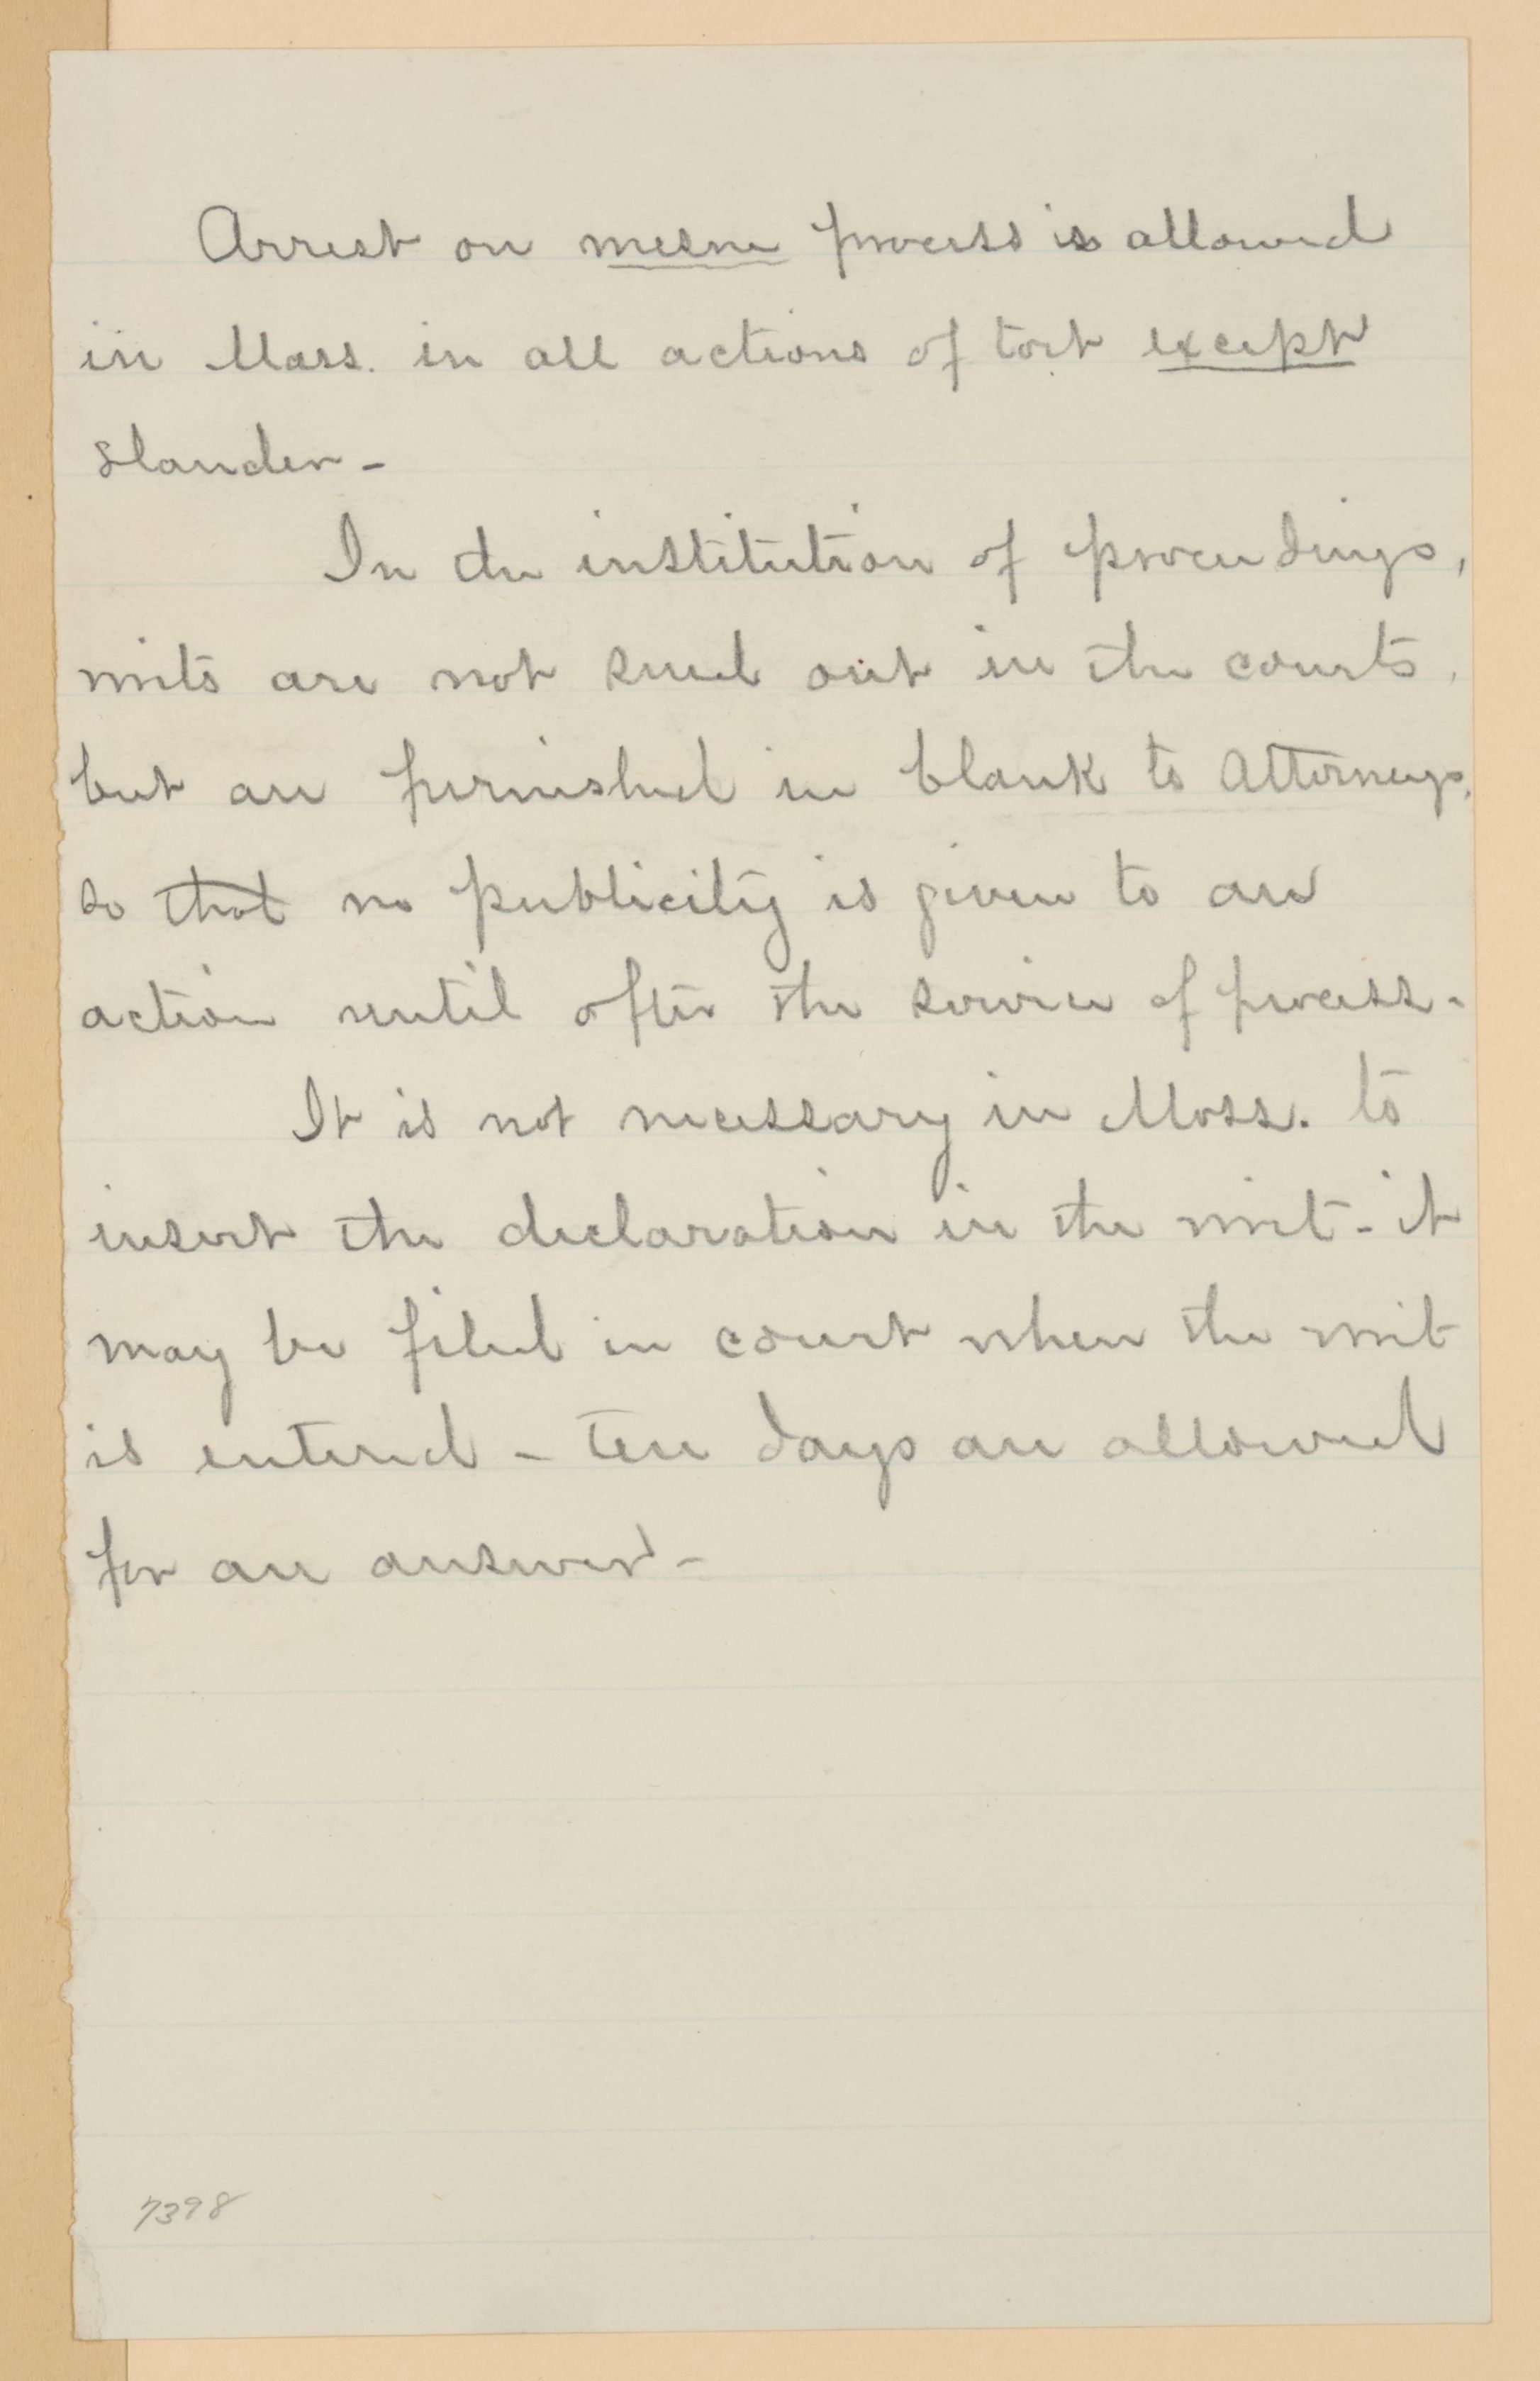 Arrest on mesne process is allowed
in Mass. in all actions of tort except
slander -
In the institution of proceedings,
writs are not sued out in the courts,
but are furnished in blank to Attorneys,
so that no publicity is given to an
action until after the service of process -
It is not necessary in Mass. to
insert the declaration in the writ - it
may be filed in court when the writ
is entered - ten days are allowed
for an answer -
7398